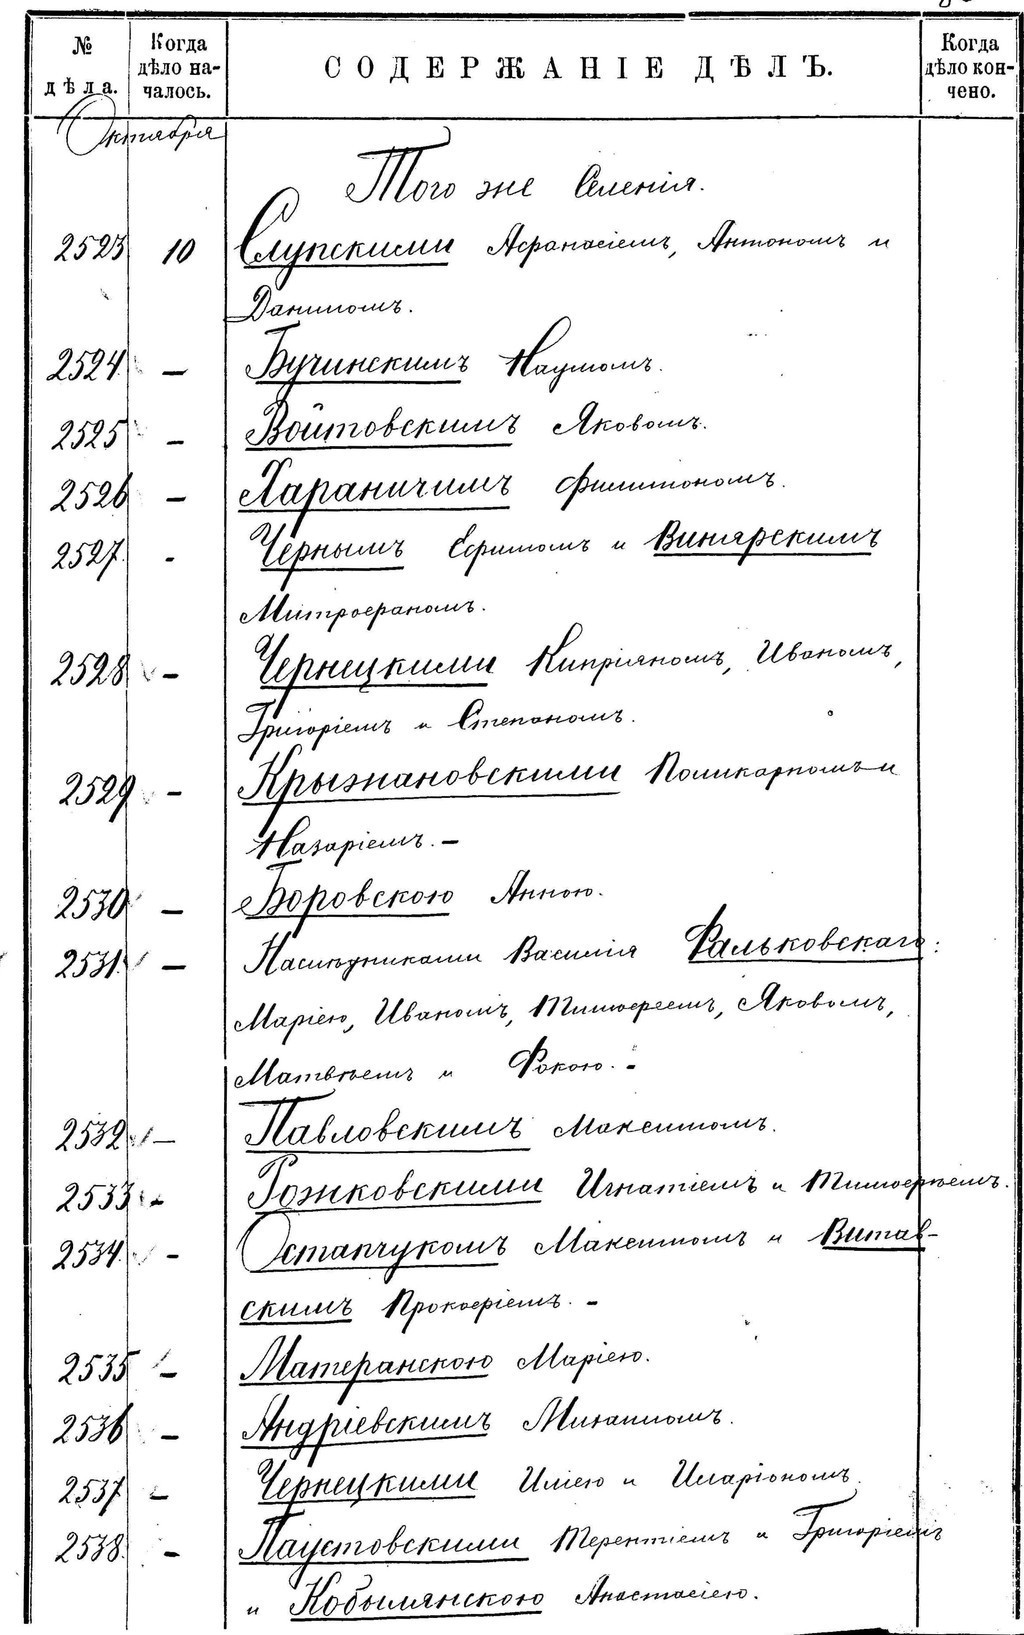 № дѣла.
Когда дѣло началось.
СОДЕРЖАНІЕ ДѢЛЪ.
Когда дѣло кончено.
Октября
Того же Селенія.
2523 10 Слупскими Афанасіемъ, Антономъ и
Даниломъ.
2524. — Бучинскимъ Наумомъ.
2525 — Войтовскимъ Яковомъ.
2526 — Хараничимъ Филимономъ.
2527. - Чернымъ Ефимомъ и Винярскимъ
Митрофаномъ.
2528 — Чернецкими Кипріяномъ, Иваномъ,
Григоріемъ и Степаномъ.
2529 — Крыжановскими Поликарпомъ и
Назаріемъ. —
2530 — Боровскою Анною.
2531 — Наслѣдниками Василія Фальковскаго:
Маріею, Иваномъ, Тимофеемъ, Яковомъ,
Матвѣемъ и Фокою. -
2532 — Павловскимъ Максимомъ.
2533 - Рожковскими Игнатіемъ и Тимофѣемъ.
2534. - Остапчукомъ Максимомъ и Витав-
скимъ Прокофіемъ. -
2535 — Матеранскою Маріею.
2536 — Андріевскимъ Михаиломъ.
2537 — Чернецкими Иліею и Иларіономъ.
2538. — Паустовскими Терентіемъ и Григоріемъ
и Кобылянскою Анастасіею.